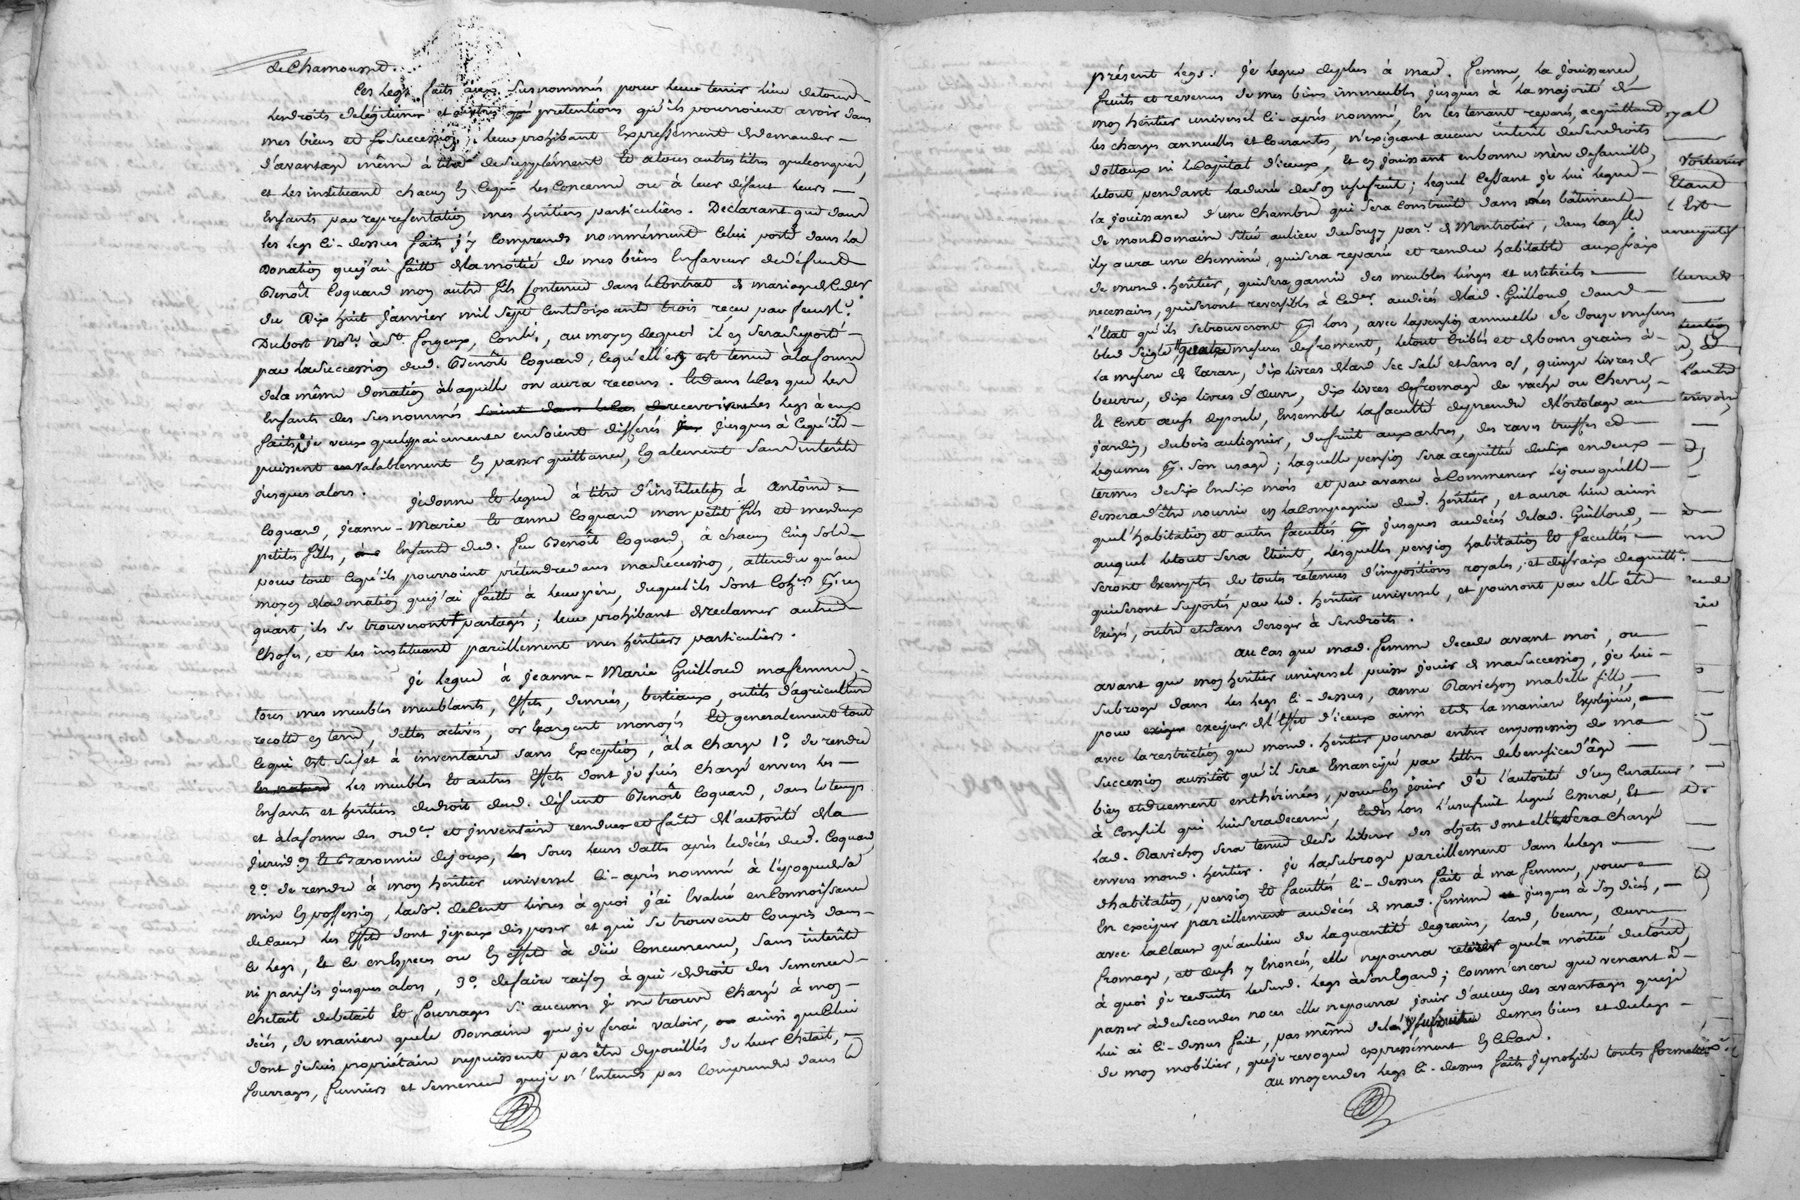 de Chamousset.
Ces legs faits aux susnommés pour leur tenir lieu de tous
les droits de légitime et autres prétentions qu'ils pourroient avoir dans
mes biens et succession, leur prohibant expressement de demander
d'avantage même à titre de supplément et a tous autres titres quelconques,
et les instituant chacun en ce qui les concerne ou à leur défaut leurs
enfants par représentation mes héritiers particuliers. Déclarant que dans
les legs ci-dessus faits j'y comprends nommément celui porté dans la
donation que j'ai faitte de la moitié de mes biens en faveur dudéfunt
Benoît Coquard mon autre fils contenue dans le contrat de mariage de ce der
du dix huit janvier mil sept cent soixante trois reçu par feu Me.
Dubost Nore. à St. forgeux, Conlé, au moyen de quoi il en sera suporté
par la succession dud. Benoît Coquard, ce qu'elle en est tenue à la forme
de la même donation à laquelle on aura recours. Et dans le cas que les
enfants des susnommés recevroient les legs à eux
faits, je veux que les paiements en soient différés jusques à ce qu'ils
puissent valablement en passer quittance, egalement sans intérêts
jusques alors.
Je donne et legue à titre d'institution à Antoine
Coquard, jeanne-Marie et anne Coquard mon petit fils et mes deux
petites filles, enfants dud. feu Benoît Coquard, à chacun cinq sols
pour tout ce qu'ils pourroient prétendre dans ma succession, attendu qu'au
moyen de la donation que j'ai faitte à leur père, duquel ils sont cohers. en
quart, ils se trouveront partagés; leur prohibant de réclamer autres
choses, et les instituant pareillement mes héritiers particuliers.
Je legue à jeanne-Marie Guilloud ma femme
tous mes meubles meublants, effets, denrées, bestiaux, outils d'agriculture
recolte en terre, dettes actives, or et argent monoyé et generalement tout
ce qui est sujet à inventaire sans exception, à la charge 1°. de rendre
les meubles et autres effets dont je suis chargé envers les
enfants et héritiers de droit dud. défunt Benoît Coquard, dans le temps
et à la forme des ordces et inventaire rendues et faits de l'autorité de la
jurisdon et Baronnie de joux, sous leurs dattes après le décès dud. Coquard
2°. de rendre à mon héritier universel ci-après nommé à l'époque de sa
mise en possession, la se. de cent livres à quoi j'ai évalué en connoissance
de cause les effets dont je peux disposer et qui se trouvent compris dans
ce legs, et ce en espèces ou en effets à due concurrence, sans intérêts
ni parisis jusques alors, 3°. de faire raison à qui de droit des semences
chetail de betail et fourrages si aucuns je me trouve chargé à mon
décès, de manière que le domaine que je ferai valoir, ainsi que celui
dont je suis propriétaire ne puissent pas être depouillés de leur chetail,
fourrages, fumiers et semences que je n'entends pas comprendre dans le
présent legs. je legue de plus à mad. femme, la jouissance,
fruits et revenus de mes biens immeubles jusques à la majorité de
mon héritier universel ci-après nommé, en les tenant reparés, acquittant
les charges annuelles et courantes, n'exigeant aucun intérêt de ses droits
dottaux ni le capital d'iceux, et en jouissant en bonne mère de famille,
le tout pendant la durée de son usufruit; lequel cessant je lui legue
la jouissance d'une chambre qui sera construite dans mes bâtiments
de mon Domaine situé au lieu du Sugy par. de Montrotier, dans laqlle
il y aura une cheminée, qui sera reparée et rendue habitable aux fraix
de mond. héritier, qui sera garnie des meubles linges et ustencils
nécessaires, qui seront reversibles à ce der au décès de lad. Guilloud, dans
l'état qu'ils se trouveront lors, avec la pension annuelle de douze mesures
bled seigle quatre mesures de froment, le tout criblés et de bons grains à
la mesure de Tarare, dix livres de lard sec salé et sans os, quinze livres de
beurre, dix livres d'œuvre, dix livres de fromage de vache ou chevre,
et cent œufs de poule, ensemble la faculté de prendre de l'ortolage au
jardin, du bois au lignier, du fruit aux arbres, des raves truffes et
legumes pr. son usage; laquelle pension sera acquittée de six en deux
termes de six en six mois et par avance à commencer le jour qu'elle
cessera d'être nourrie en la compagnie dud. héritier, et aura lieu ainsi
que l'habitation et autres facultés jusques au décès de lad. Guilloud,
auquel le tout sera eteint, lesquelles pension habitation et facultés
seront exemptes de toutes retenues d'impositions royales, et des fraix de quitte.
qui seront suportés par led. héritier universel, et pourront par elle être
exigés, outre et sans deroger à ses droits.
au cas que mad. femme decede avant moi, ou
avant que mon héritier universel puisse jouir de ma succession, je lui
subroge dans les legs ci-dessus, anne Ravichon ma belle fille,
pour exciper de l'effet d'iceux ainsi et de la manière expliquée,
avec la restriction que mond. héritier pourra entrer en possession de ma
succession aussitôt qu'il sera émancipé par lettres de benefice d'âge
bien et duement enthérinées, pour en jouir de l'autorité d'un curateur
à conseil qui lui sera decerné, et dès lors l'usufruit legué cessera, et
lad. Ravichon sera tenue de se libérer des objets dont elle sera chargée
envers mond. héritier. je la subroge pareillement dans le legs
d'habitation, pension et facultés ci-dessus fait à ma femme, pour
en exciper pareillement au décès de mad. femme jusques à son décès,
avec la clause qu'au lieu de la quantité de grains, lard, beurre, œuvre
fromage, et œufs y énoncés, elle ne pourra retirer que la moitié du tout,
à quoi je reduits le sud. legs à son égard; comm'encore que venant à
passer à de secondes noces elle ne pourra jouir d'aucun des avantages que je
lui ai ci-dessus fait, pas même de la jouissance de mes biens et du legs
de mon mobilier, que je revoque expressément en ce cas.
au moyen des legs ci-dessus faits je prohibe toutes formalités